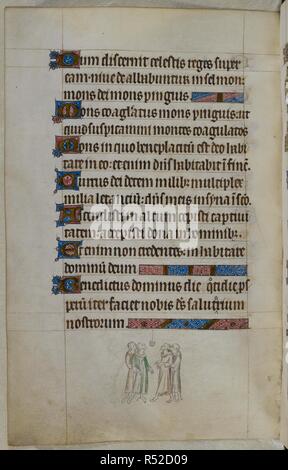 Dum discernit celestis reges super
eam niue dealbabuntur in selmon:
mons dei mons pinguis
Mons coaglatus mons pinguis: ut
quid suspicamini montes coagulatos
Mons in quo beneplacitum est deo habi
tare in eo: etenim dñs habitabit ī finē.
Currus dei decem milib; multiplex
milia letātiū: dñs in eis in syna ī sc̄o.
Ascendisti in altum cepisti captiui
tatem: accepisti dona in hominib;.
Etenim non credentes: inhabitare
dominū deum
Benedictus dominus die cotidie: ps
perū iter faciet nobis ds̄ salutarium
nostrorum
alamy
Image ID: R52D09
www.alamy.com